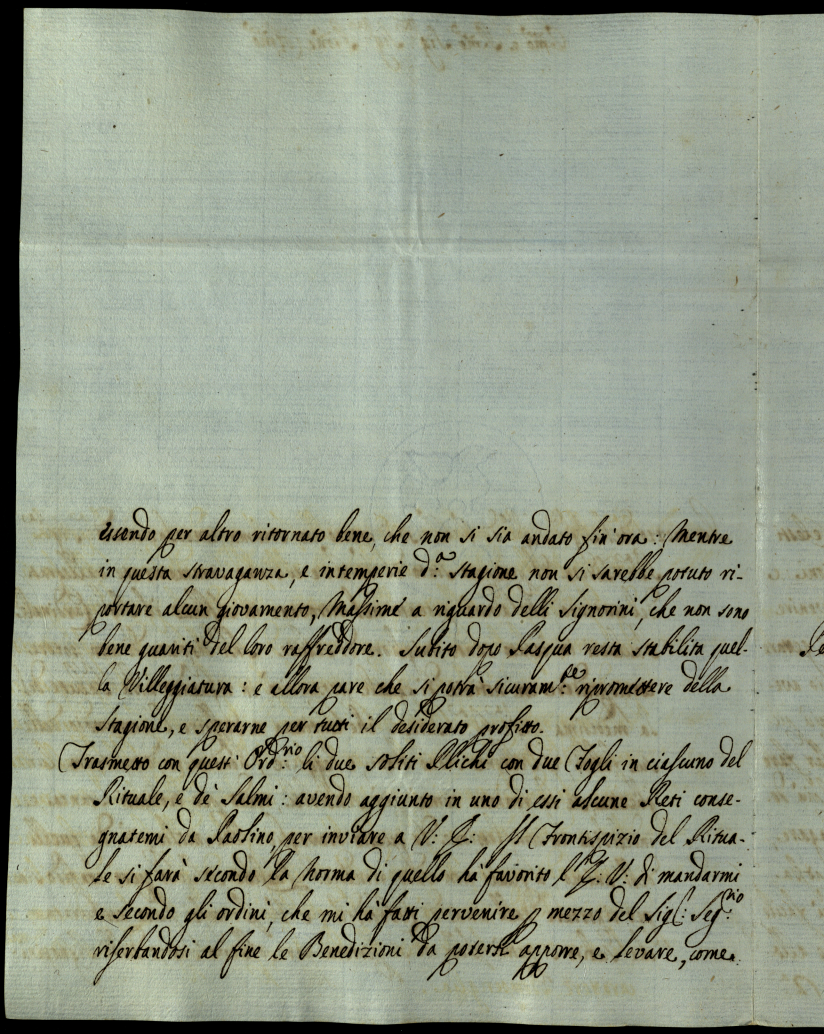 essendo per altro ritornato bene, che non si sia andato fin'ora: Mentre
in questa stravaganza, e intemperie d:ª stagione non si sarebbe potuto ri-
portare alcun giovamento, Massime a riguardo delli Signorini, che non sono
bene guariti del loro raffreddore. Subito dopo Pasqua resta stabilita quel-
la Villeggiatura: e allora pare che si potrà sicuram:te ripromettere della
stagione, e sperarne per tutti il desiderato profitto.
Trasmetto con quest' Ord:rio li due soliti Plichi con due Fogli in ciascuno del
Rituale, e de' Salmi: avendo aggiunto in uno di essi alcune Reti conse-
gnatemi da Paolino, per inviare a V: Il Frontispizio del Ritua-
le si farà secondo la Norma di quello ha favorito l' V: di mandarmi
e secondo gli ordini, che mi hà fatti pervenire p mezzo del Sig: Seg:rio
riserbandosi al fine le Benedizioni da potersi apporre, e levare, come